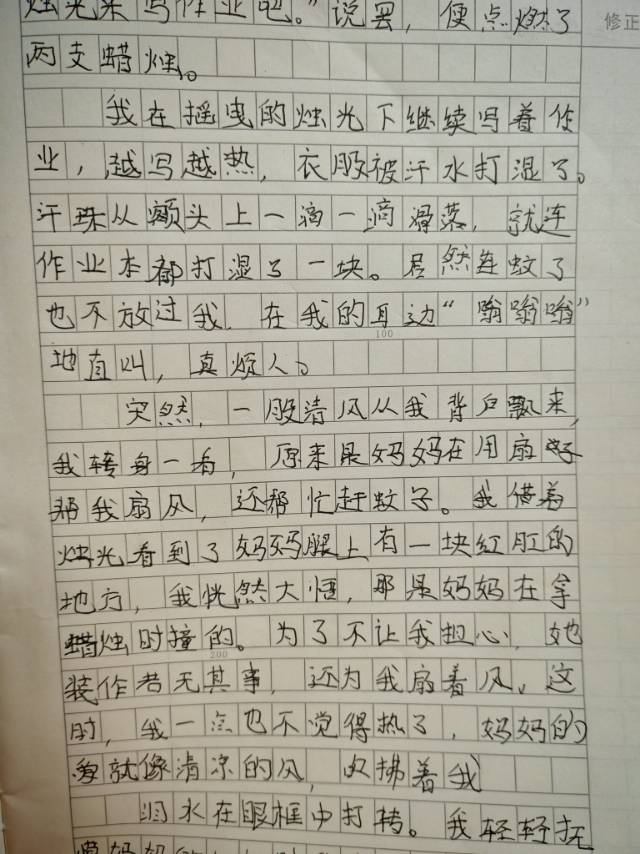 烛光来写作业吧。”说罢，便点燃了
修正
两支蜡烛。
我在摇曳的烛光下继续写着作
业，越写越热，衣服被汗水打湿了。
汗珠从额头上一滴一滴滑落，就连
作业本都打湿了一块。居然连蚊子
也不放过我，在我的耳边“嗡嗡嗡”
100
地直叫，真烦人。
突然，一股清风从我背后飘来，
我转身一看，原来是妈妈在用扇子
帮我扇风，还帮忙赶蚊子。我借着
烛光看到了妈妈腿上有一块红肛的
地方，我恍然大悟，那是妈妈在拿
蜡烛时撞的。为了不让我担心，她
200
装作若无其事，还为我扇着风。这
时，我一点也不觉得热了，妈妈的
爱就像清凉的风，吹拂着我
泪水在眼框中打转。我轻轻抚
摸妈妈的